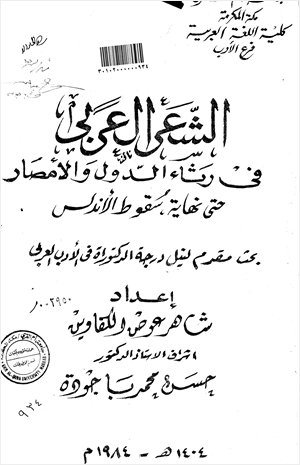 مكة المكرمة
كلية اللغة العربية
فرع الأدب
٣٠١٠٢٠٠٠٠٠٠٩٣٤
الشعر العربي
في رثاء الدول والأمصار
حتى نهاية سقوط الأندلس
بحث مقدم لنيل درجة الدكتوراة في الأدب العربي
إعداد
شاهر عوض الكفاوين
اشراف الاستاذ الدكتور
حسن محمد باجودة
٠٠٢٩٥٠
٩٣٤
١٤٠٤ هـ - ١٩٨٤ م